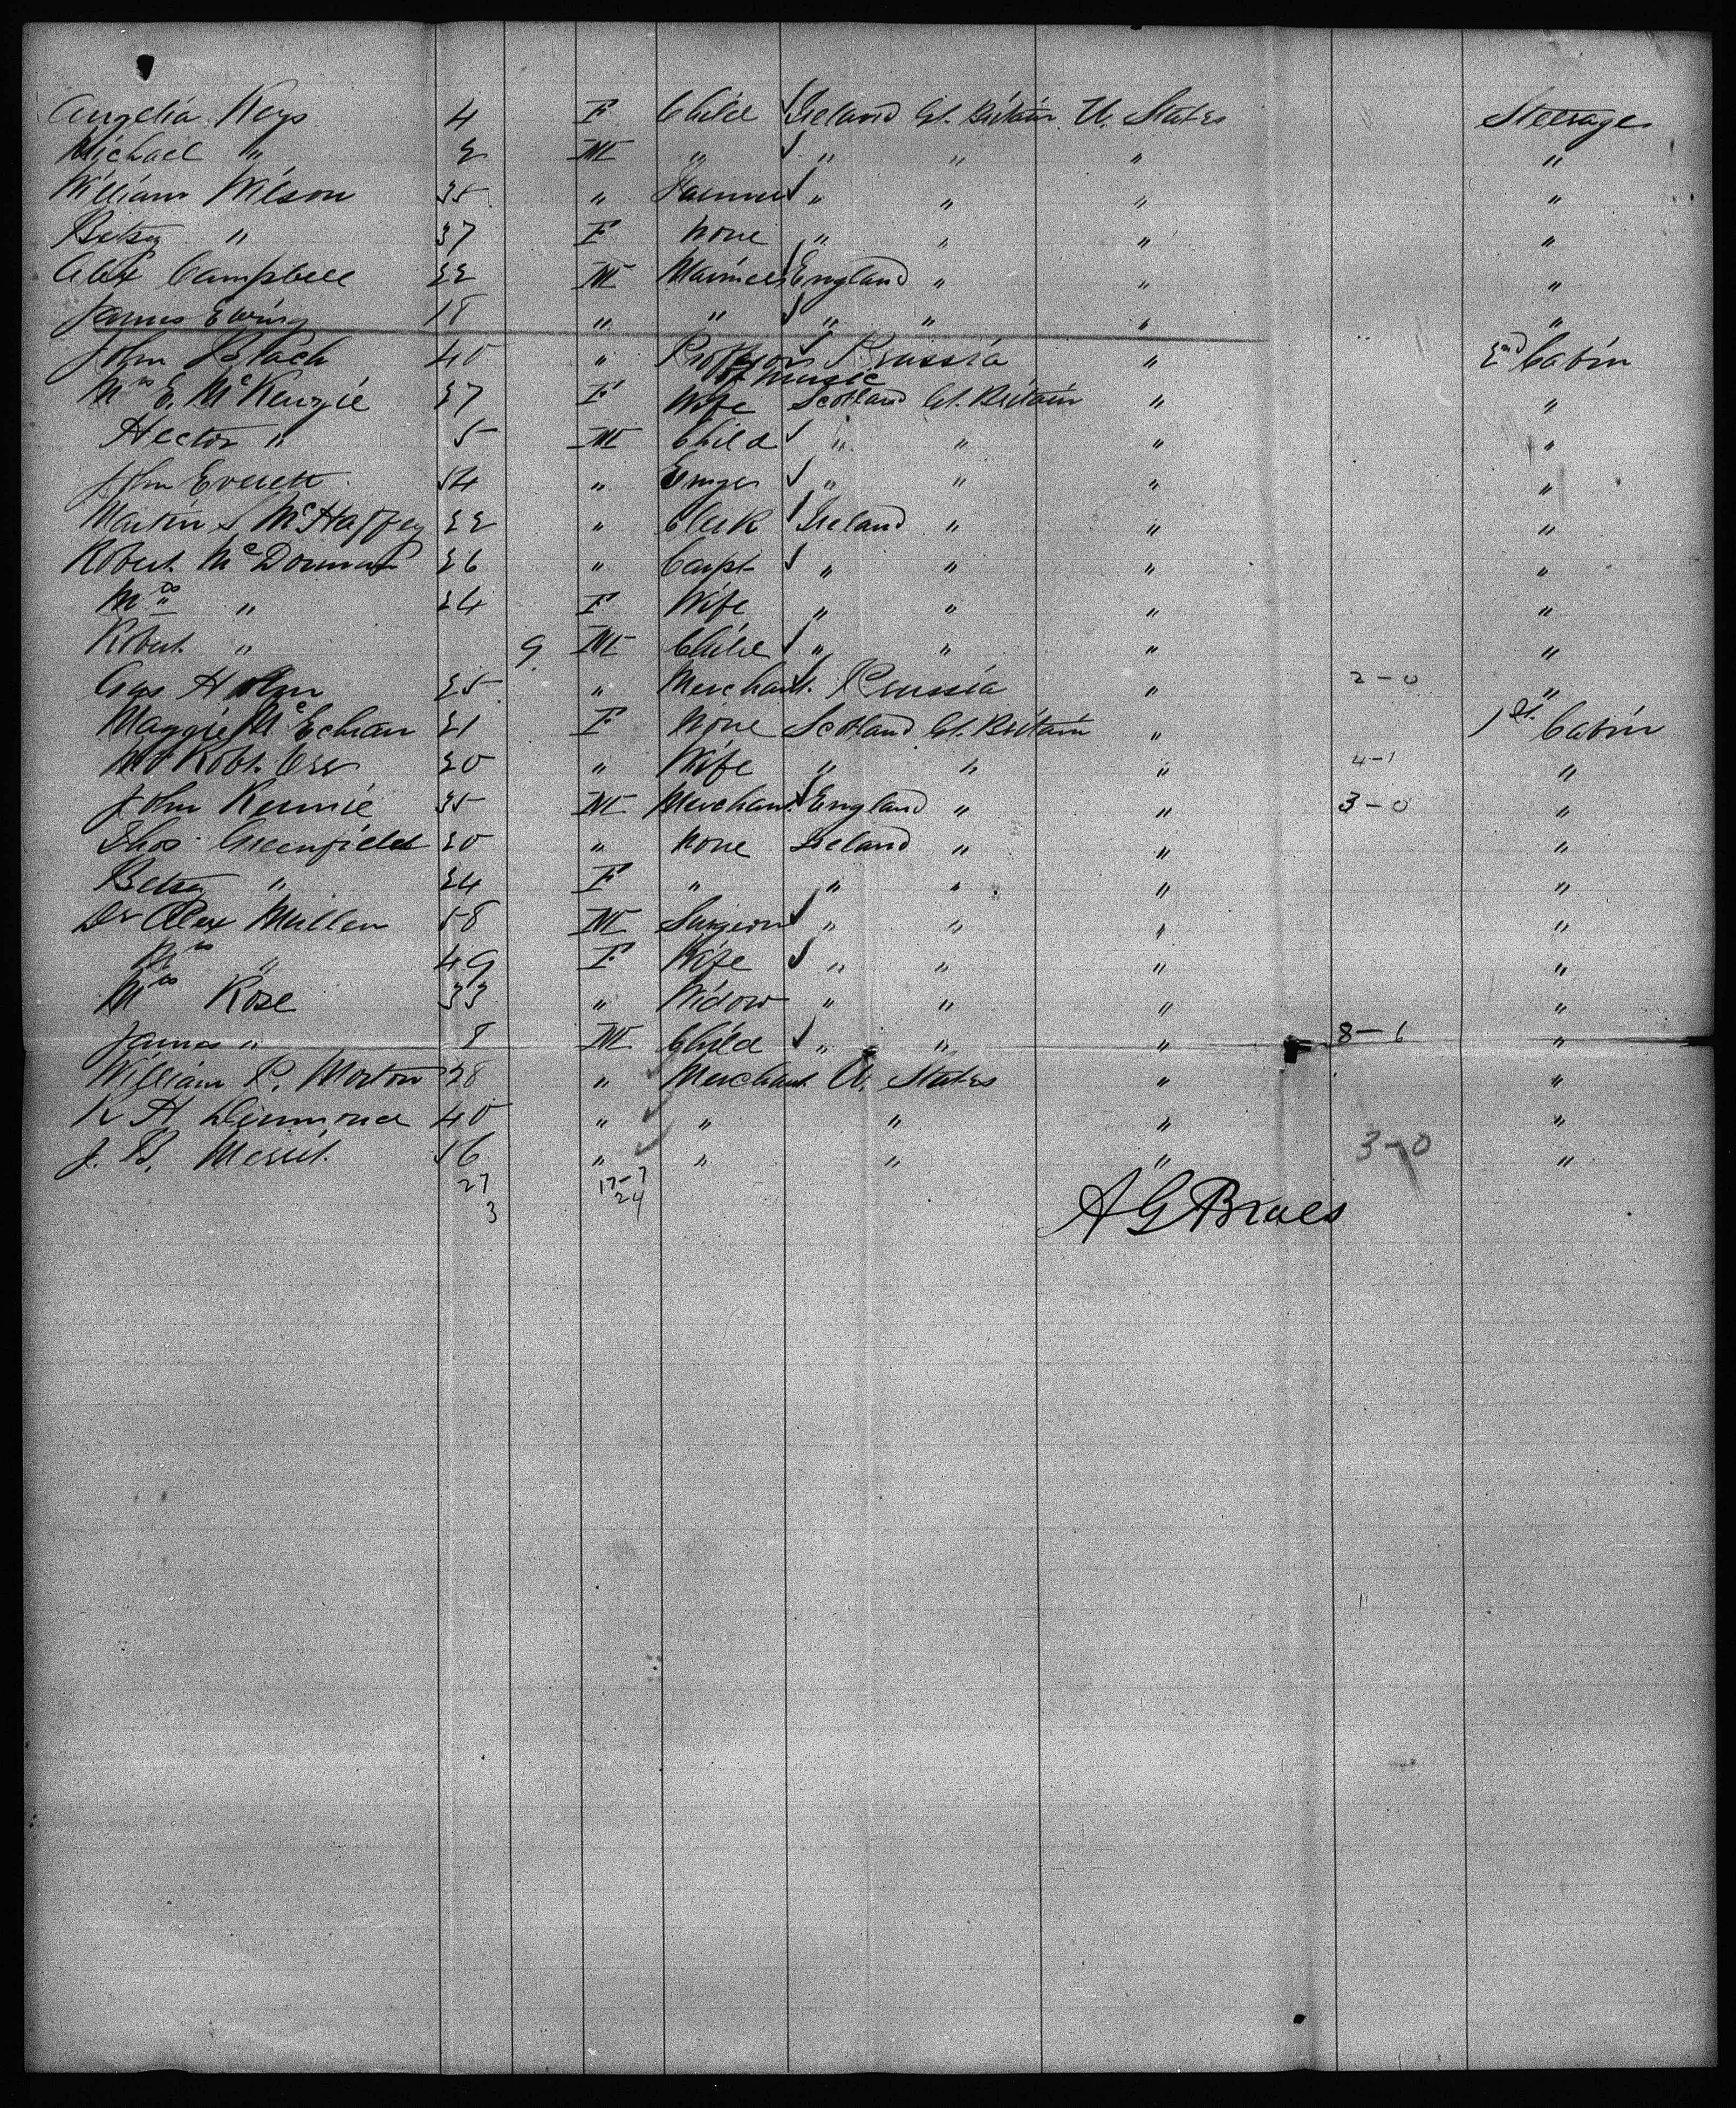 Angelia Keys 4 F Child ✓ Ireland Gt. Britain U. States Steerage
Michael " 2 M " ✓ " " " "
William Wilson 35 " Farmer ✓ " " " "
Betsy " 37 F None " " " "
Alex Campbell 22 M Mariner ✓ England " " "
James Ewing 18 " " ✓ " " " "
John Black 40 " Professor ✓ Prussia " 2nd Cabin
of music
Mrs E. McKenzie 27 F Wife Scotland Gt. Britain " "
Hector " 5 M Child ✓ " " " "
John Everett 54 " ✓ " " " "
Martin S McHaffey 22 " Clerk ✓ Ireland " " "
Robert McDonnan 26 " Carpt ✓ " " " "
Mrs " 24 F Wife " " " "
Robert " 9 M Child ✓ " " " "
Gus Holm 25 " Merchant ✓ Prussia " 2-0 "
Maggie McEchran 21 F None Scotland Gt. Britain " 1st Cabin
Mrs Robt. Orr 20 " Wife " " " 4-1 "
John Rennie 35 M Merchant ✓ England " " 3-0 "
Thos Greenfield 20 " None Ireland " " "
Betsy " 24 F " " " " "
Dr Alex Mullen 58 M Surgeon ✓ " " " "
Mrs " 49 F Wife ✓ " " " "
Mrs Rose 33 " Widow " " " "
James " 8 M Child ✓ " " " 8-6 "
William P. Morton 28 " ✓ Merchant U. States " "
R H Dimmond 40 " ✓ " " " "
J. B. Merrit 56 " ✓ " " " 3-0 "
27 17-7
3 24
A G Braes